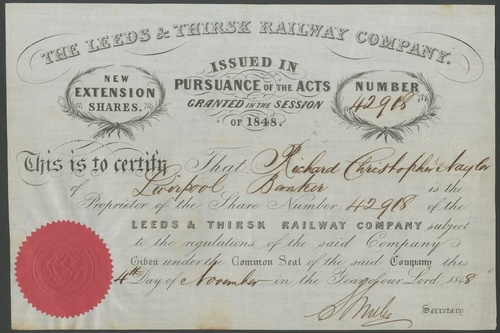 THE LEEDS & THIRSK RAILWAY COMPANY.
NEW
EXTENSION
SHARES.
ISSUED IN
PURSUANCE OF THE ACTS
GRANTED IN THE SESSION
OF 1848.
NUMBER
42908
This is to certify That Richard Christopher Naylor
of Liverpool Banker is the
Proprietor of the Share Number 42908 of the
LEEDS & THIRSK RAILWAY COMPANY subject
to the regulations of the said Company
Given under the Common Seal of the said Company this
4th Day of November in the Year of our Lord 1848
Secretary